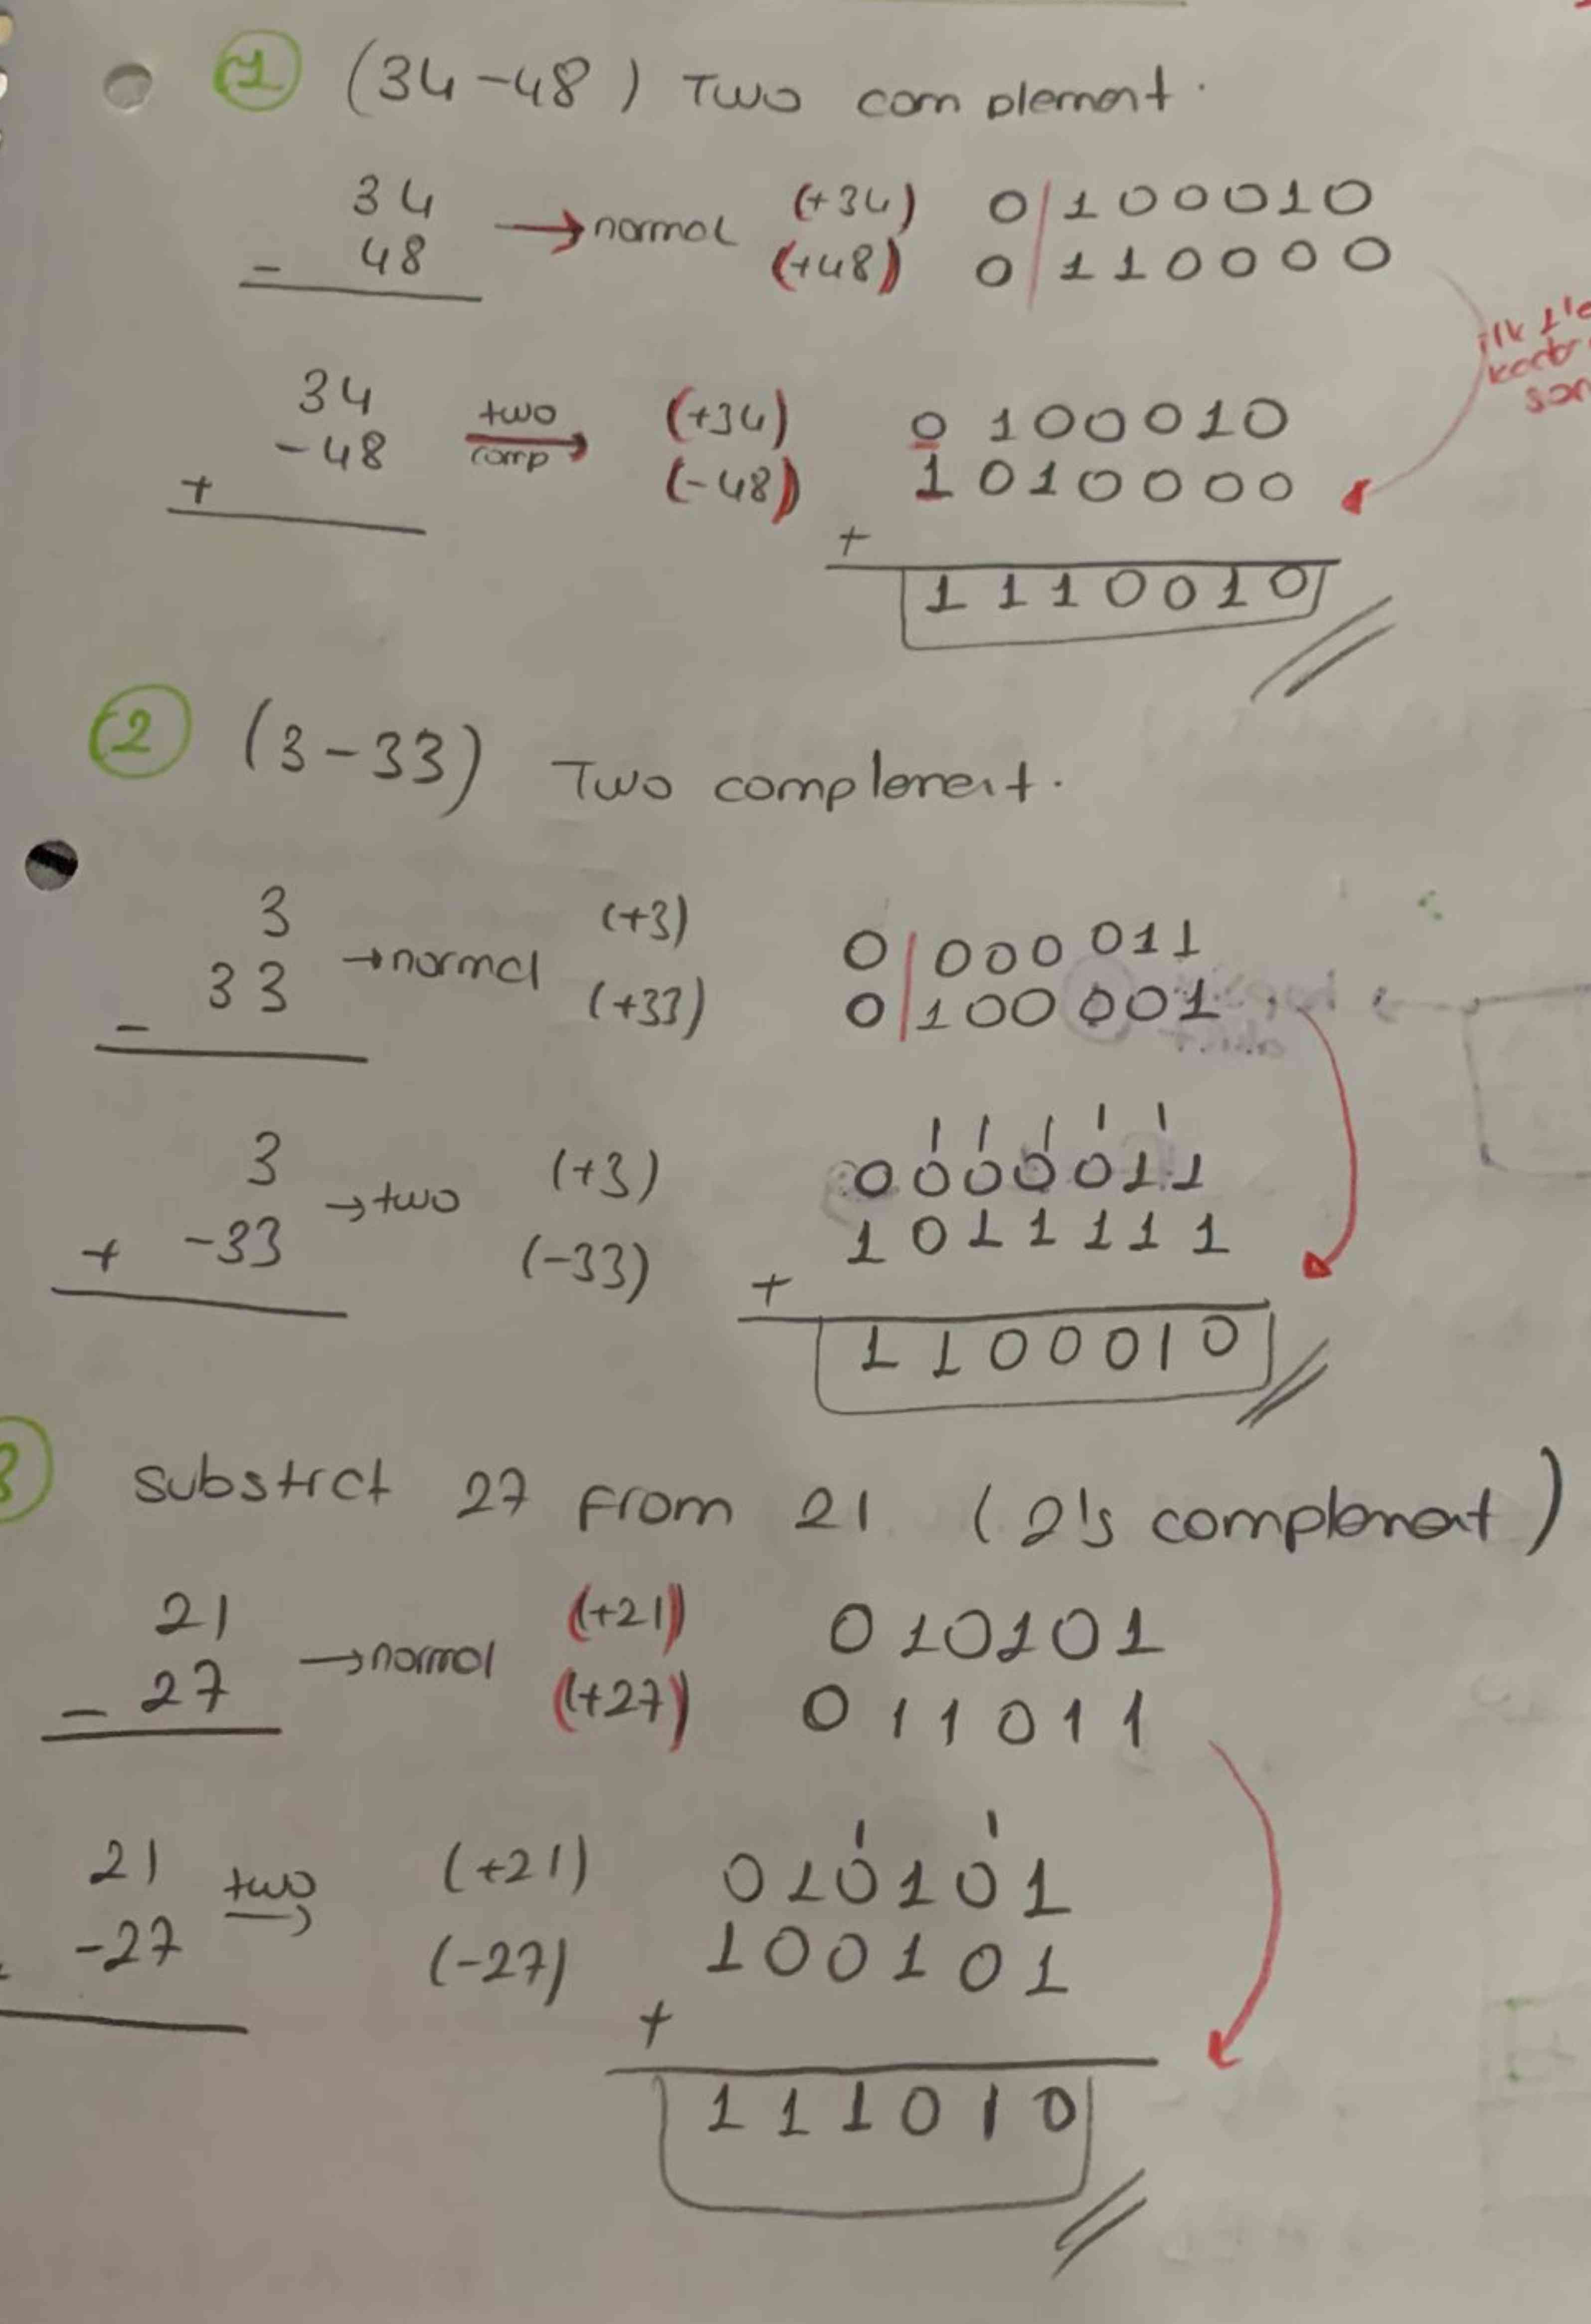 1 (34-48) Two complement.
34 → normal (+34) 0|100010
- 48 (+48) 0|110000
ilk 1'e
34 two comp → (+34) 0 100010
+ -48 (-48) 1010000
+
1110010
2 (3-33) Two complement.
3 → normal (+3) 0|000011
- 33 (+33) 0|100001
1 1 1 1 1
3 → two (+3) 0000011
+ -33 (-33) 1011111
+
1100010
3 substrct 27 from 21 (2's complement)
21 → normal (+21) 010101
- 27 (+27) 011011
1 1
21 two → (+21) 010101
-27 (-27) 100101
+
111010